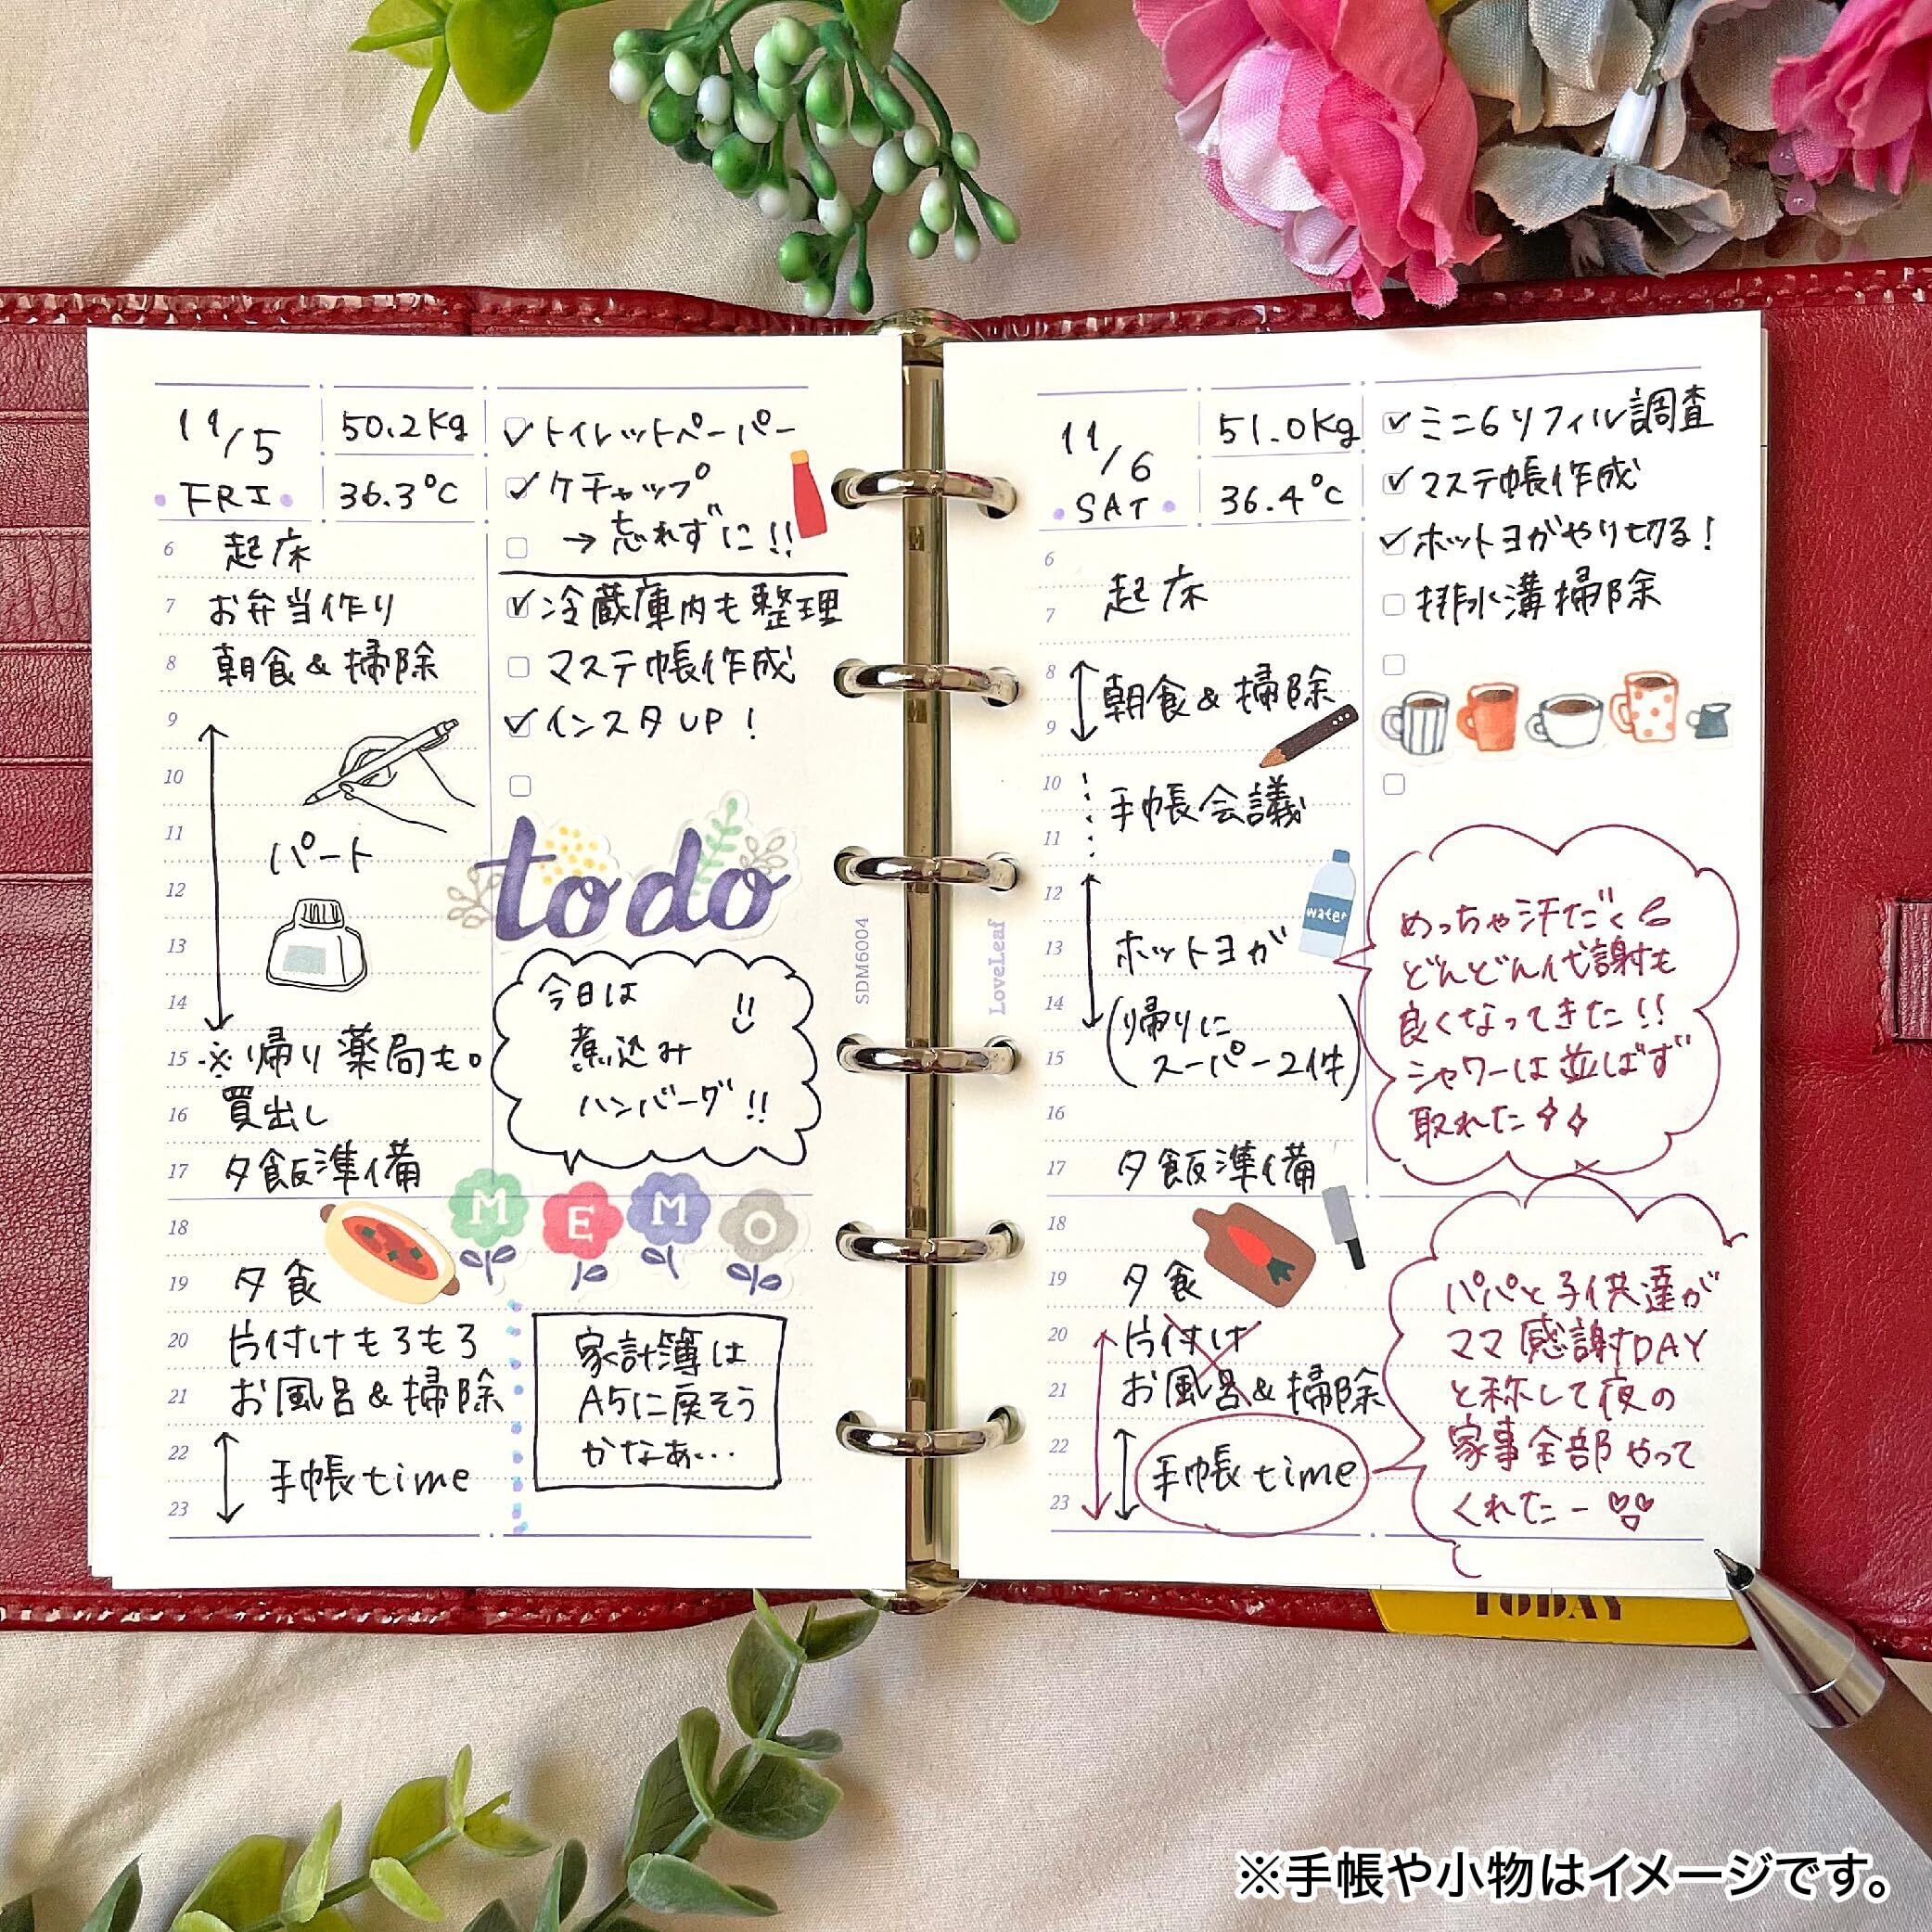 11/5
FRI
50.2Kg
36.3℃
トイレットペーパー
ケチャップ
→忘れずに!!
冷蔵庫内も整理
マステ帳作成
インスタUP!
6 起床
7 お弁当作り
8 朝食&掃除
9
10
11
パート
12
13
14
15 ※帰り薬局も。
16 買出し
17 夕飯準備
18
19 夕食
20 片付けもろもろ
21 お風呂&掃除
22
手帳time
23
to do
今日は
煮込み
ハンバーグ!!
MEMO
家計簿は
A5に戻そう
かなぁ…
SDM6004
LoveLeaf
11/6
SAT
51.0Kg
36.4℃
ミニ6リフィル調査
マステ帳作成
ホットヨガやり切る!
排水溝掃除
6
7 起床
8
朝食&掃除
9
10
手帳会議
11
12
13 ホットヨガ
14
(帰りに
15 スーパー2件)
16
17 夕飯準備
18
19 夕食
20 片付け
21 お風呂&掃除
22
手帳time
23
water
めっちゃ汗だく
どんどん代謝も
良くなってきた!!
シャワーは並ばず
取れた
パパと子供達が
ママ感謝DAY
と称して夜の
家事全部やって
くれたー
TODAY
※手帳や小物はイメージです。